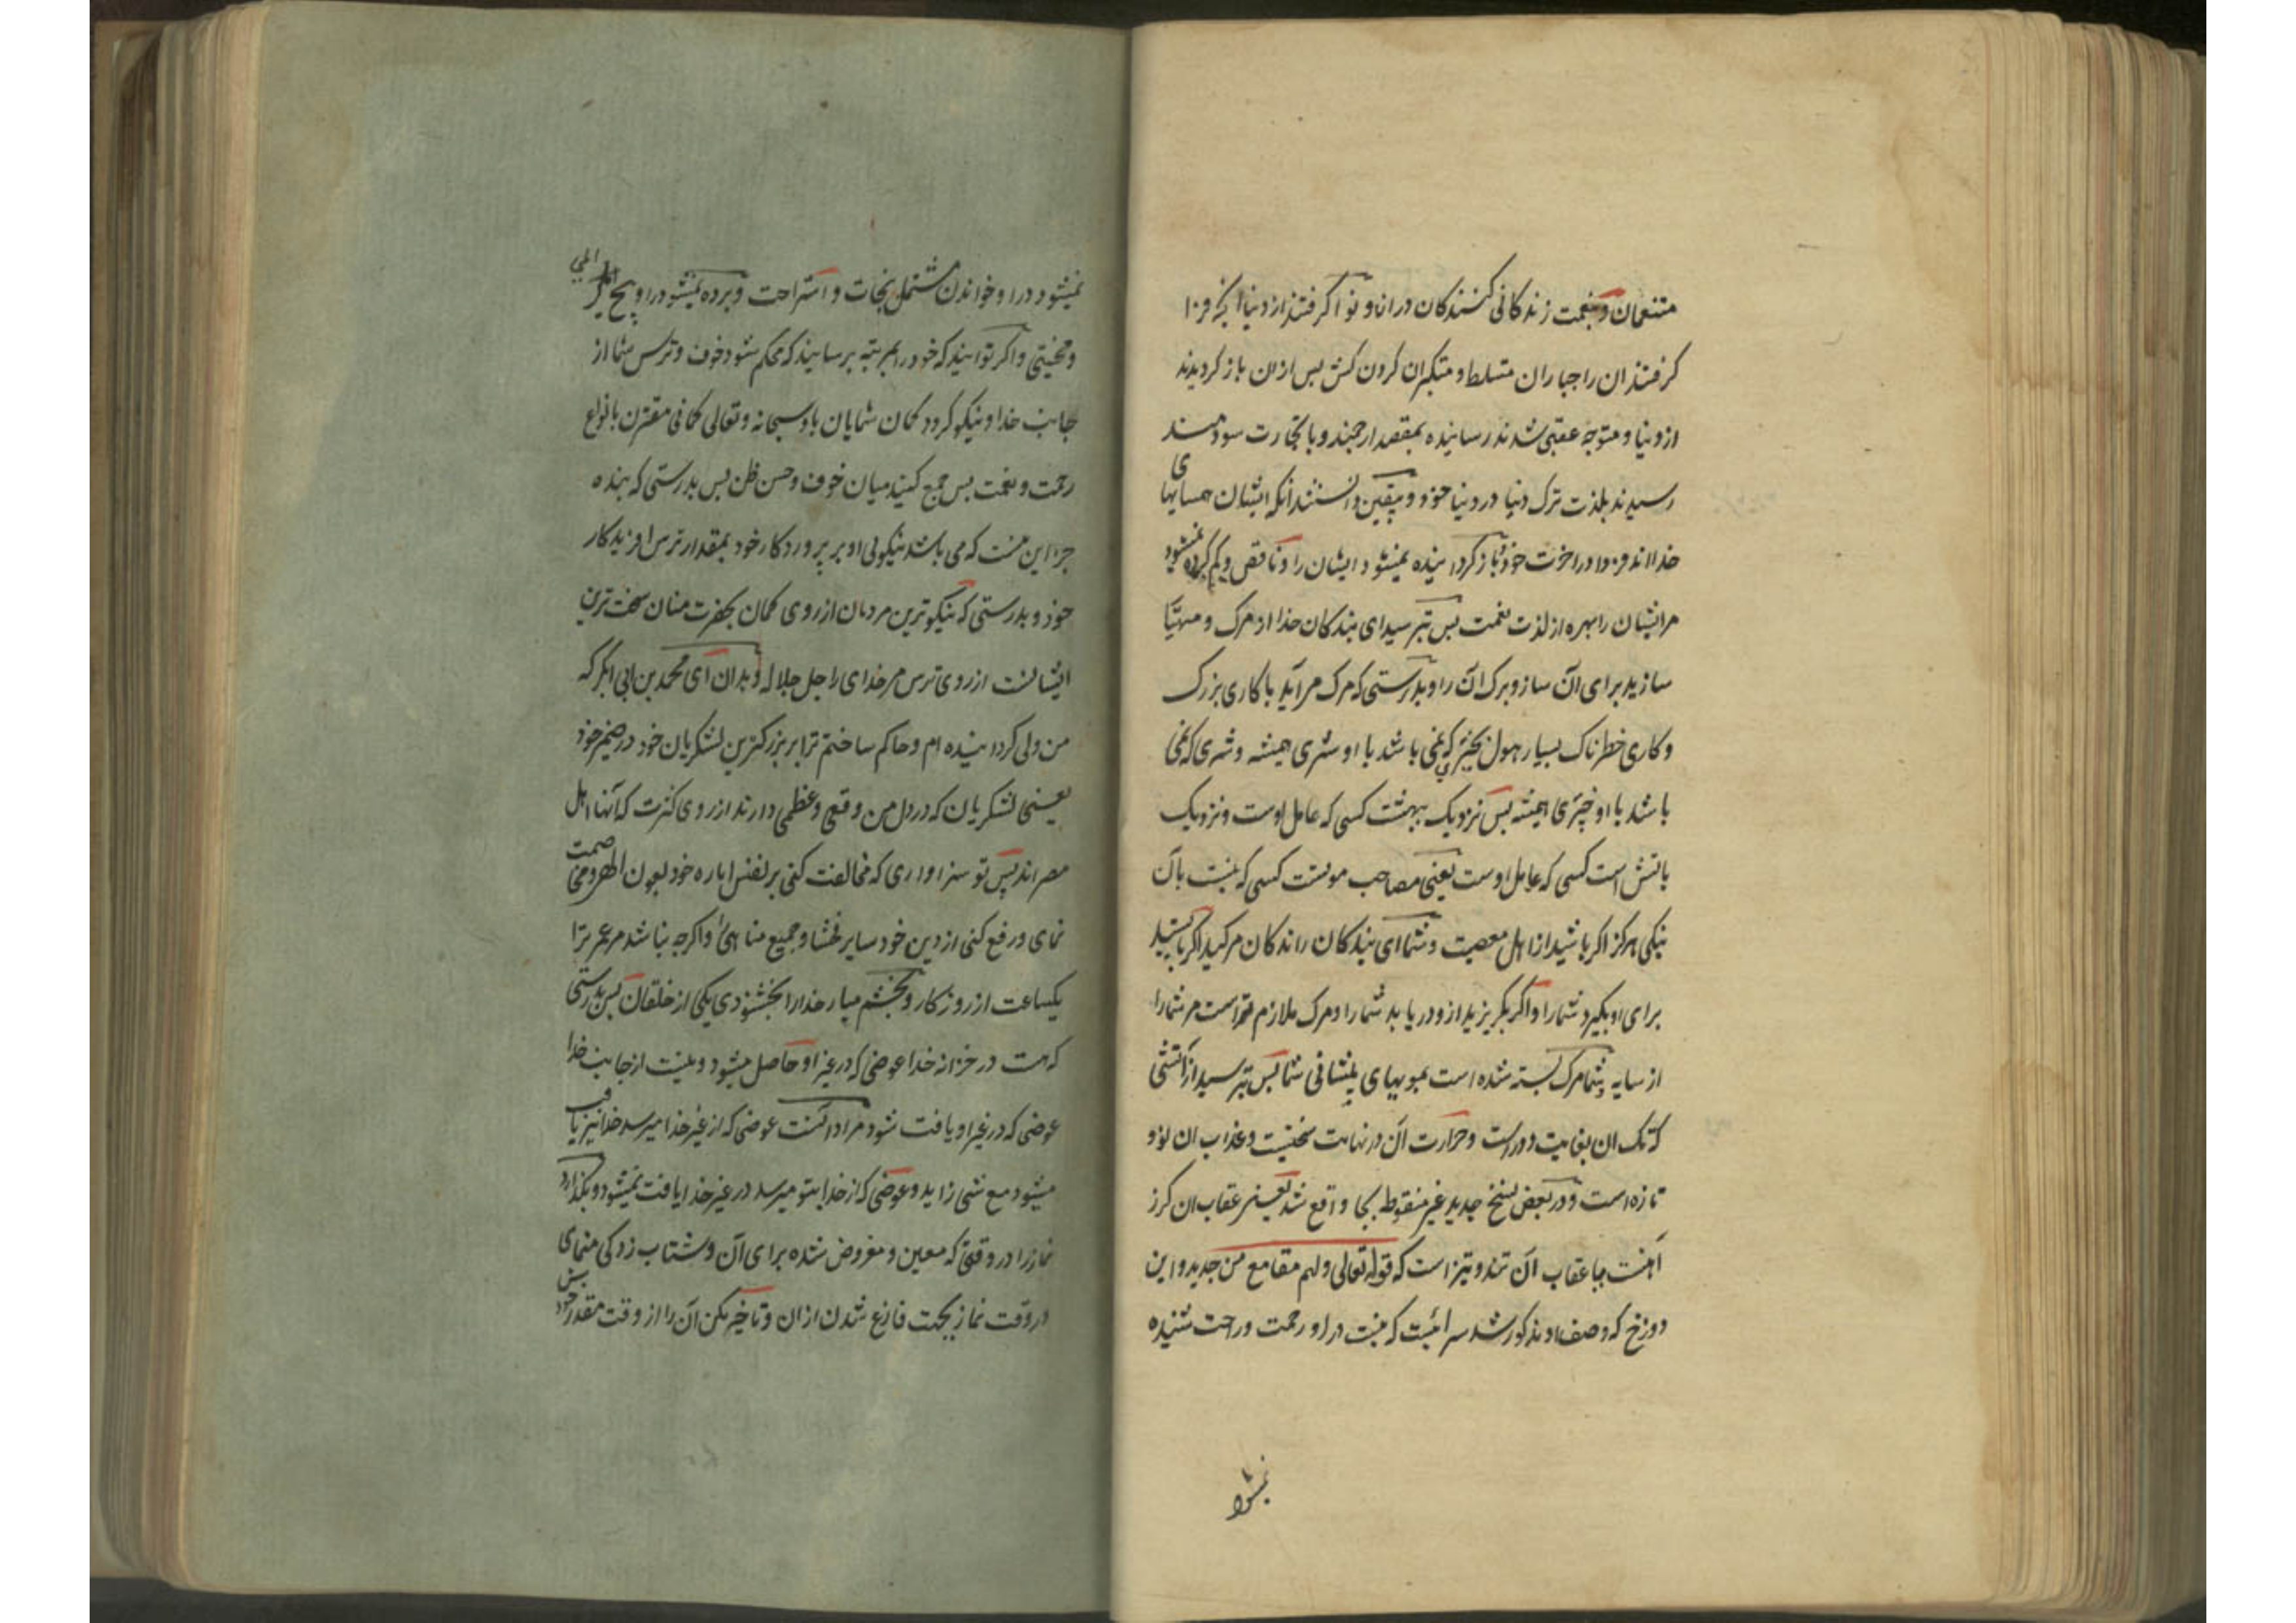 متنعمان و بنعمت زندکانی کنندکان در انا و نوا کرفتند از دنیا آنچه فرا
کرفتند ان را جباران متسلط و متکبران کردن کش بس ازان باز کردیدند
از دنیا و متوجه عقبی شدند رساننده بمقصد ارجمند و با تجارت سودمند
رسیدند بلذت ترک دنیا در دنیا خود و بیقین دانستند آنکه ایشان همسایهای
خدااند فردا در اخرت خود باز کردانیده نمیشود ایشان را و ناقص و کم کرده نمیشود
مر ایشان را بهره از لذت نعمت بس بترسید ای بندکان خدا از مرک و مهیّا
سازید برای آن ساز و برک آن را و بدرستی که مرک مرآید با کاری بزرک
و کاری خطرناک بسیار هول بخیری که نمی باشد با او شری همیشه و شری که نمی
باشد با او خیری همیشه بس نزدیک ببهشت کسی که عامل اوست و نزدیک
باتش است کسی که عامل اوست یعنی مصاحب موتست کسی که نیست بآن
نیکی هرکز اکر باشید از اهل معصیت و شما ای بندکان راندکان مرکید اکر بایستید
برای او بکیرد شما را و اکر بکریزید ازو دریابد شما را و مرک ملازم تر است مر شما را
از سایه شما مرک بسته شده است بمویهای پیشانی شما بس بترسید از آتشی
که تک ان بغایت دور است و حرارت آن در نهایت سختیست و عذاب ان نو و
تازه است و در بعض نسخ جدید غیر منقوط بجا واقع شد یعنی عقاب ان کرز
آهنست بیا عقاب آن تند و تیز است که قوله تعالی و لهم مقامع من حدید و این
دوزخ که وصف او مذکور شد سرائیست که نیست در او رحمت و راحت شنیده
نمیشود
نمیشود در او خواندن مشتمل بنجات و استراحت و برده نمیشود در او هیچ المی
و محنتی و اکر توانید که خود را بمرتبه برسانید که محکم شود خوف و ترس شما از
جانب خدا و نیکو کردد کمان شمایان باو سبحانه و تعالی کمانی مقترن بانواع
رحمت و نعمت بس جمع کنید میان خوف و حسن ظن بس بدرستی که بنده
جز این نیست که می باشد نیکوئی او بر پروردکار خود بمقدار ترس آفریدکار
خود و بدرستی که نیکوترین مردمان از روی کمان بحضرت منان سخت ترین
ایشانست از روی ترس مر خدای را جل جلاله و بدان ای محمد بن ابی ابکر که
من والی کردانیده ام و حاکم ساختم ترا بر بزرکترین لشکریان خود در ضمیر خود
یعنی لشکریان که در دل من وقعی و عظمی دارند از روی کثرت که آنها اهل
مصراند پس تو سزاواری که مخالفت کنی بر نفس اماره خود بعون الهی و خصومت
نمای و رفع کنی از دین خود سایر فحشا و جمیع مناهی را و اکرچه نباشد مر عمر ترا
یکساعت از روزکار و بخشم میار خدا را بخشنودی یکی از خلقان بس بدرستی
که هست در خزانه خدا عوضی که در غیر او حاصل میشود و نیست از جانب خدا
عوضی که در غیر او یافت شود مراد آنست عوضی که از غیر خدا میرسد خدا نیز یافت
میشود مع شئ زاید و عوضی که از خدا بتو میرسد در غیر خدا یافت نمیشود و بکذارد
نماز را در وقتی که معین و مفروض شده برای آن و شتاب زدکی منمای
در وقت نماز بجهت فارغ شدن ازان و تاخیر مکن آن را از وقت مقدر خود